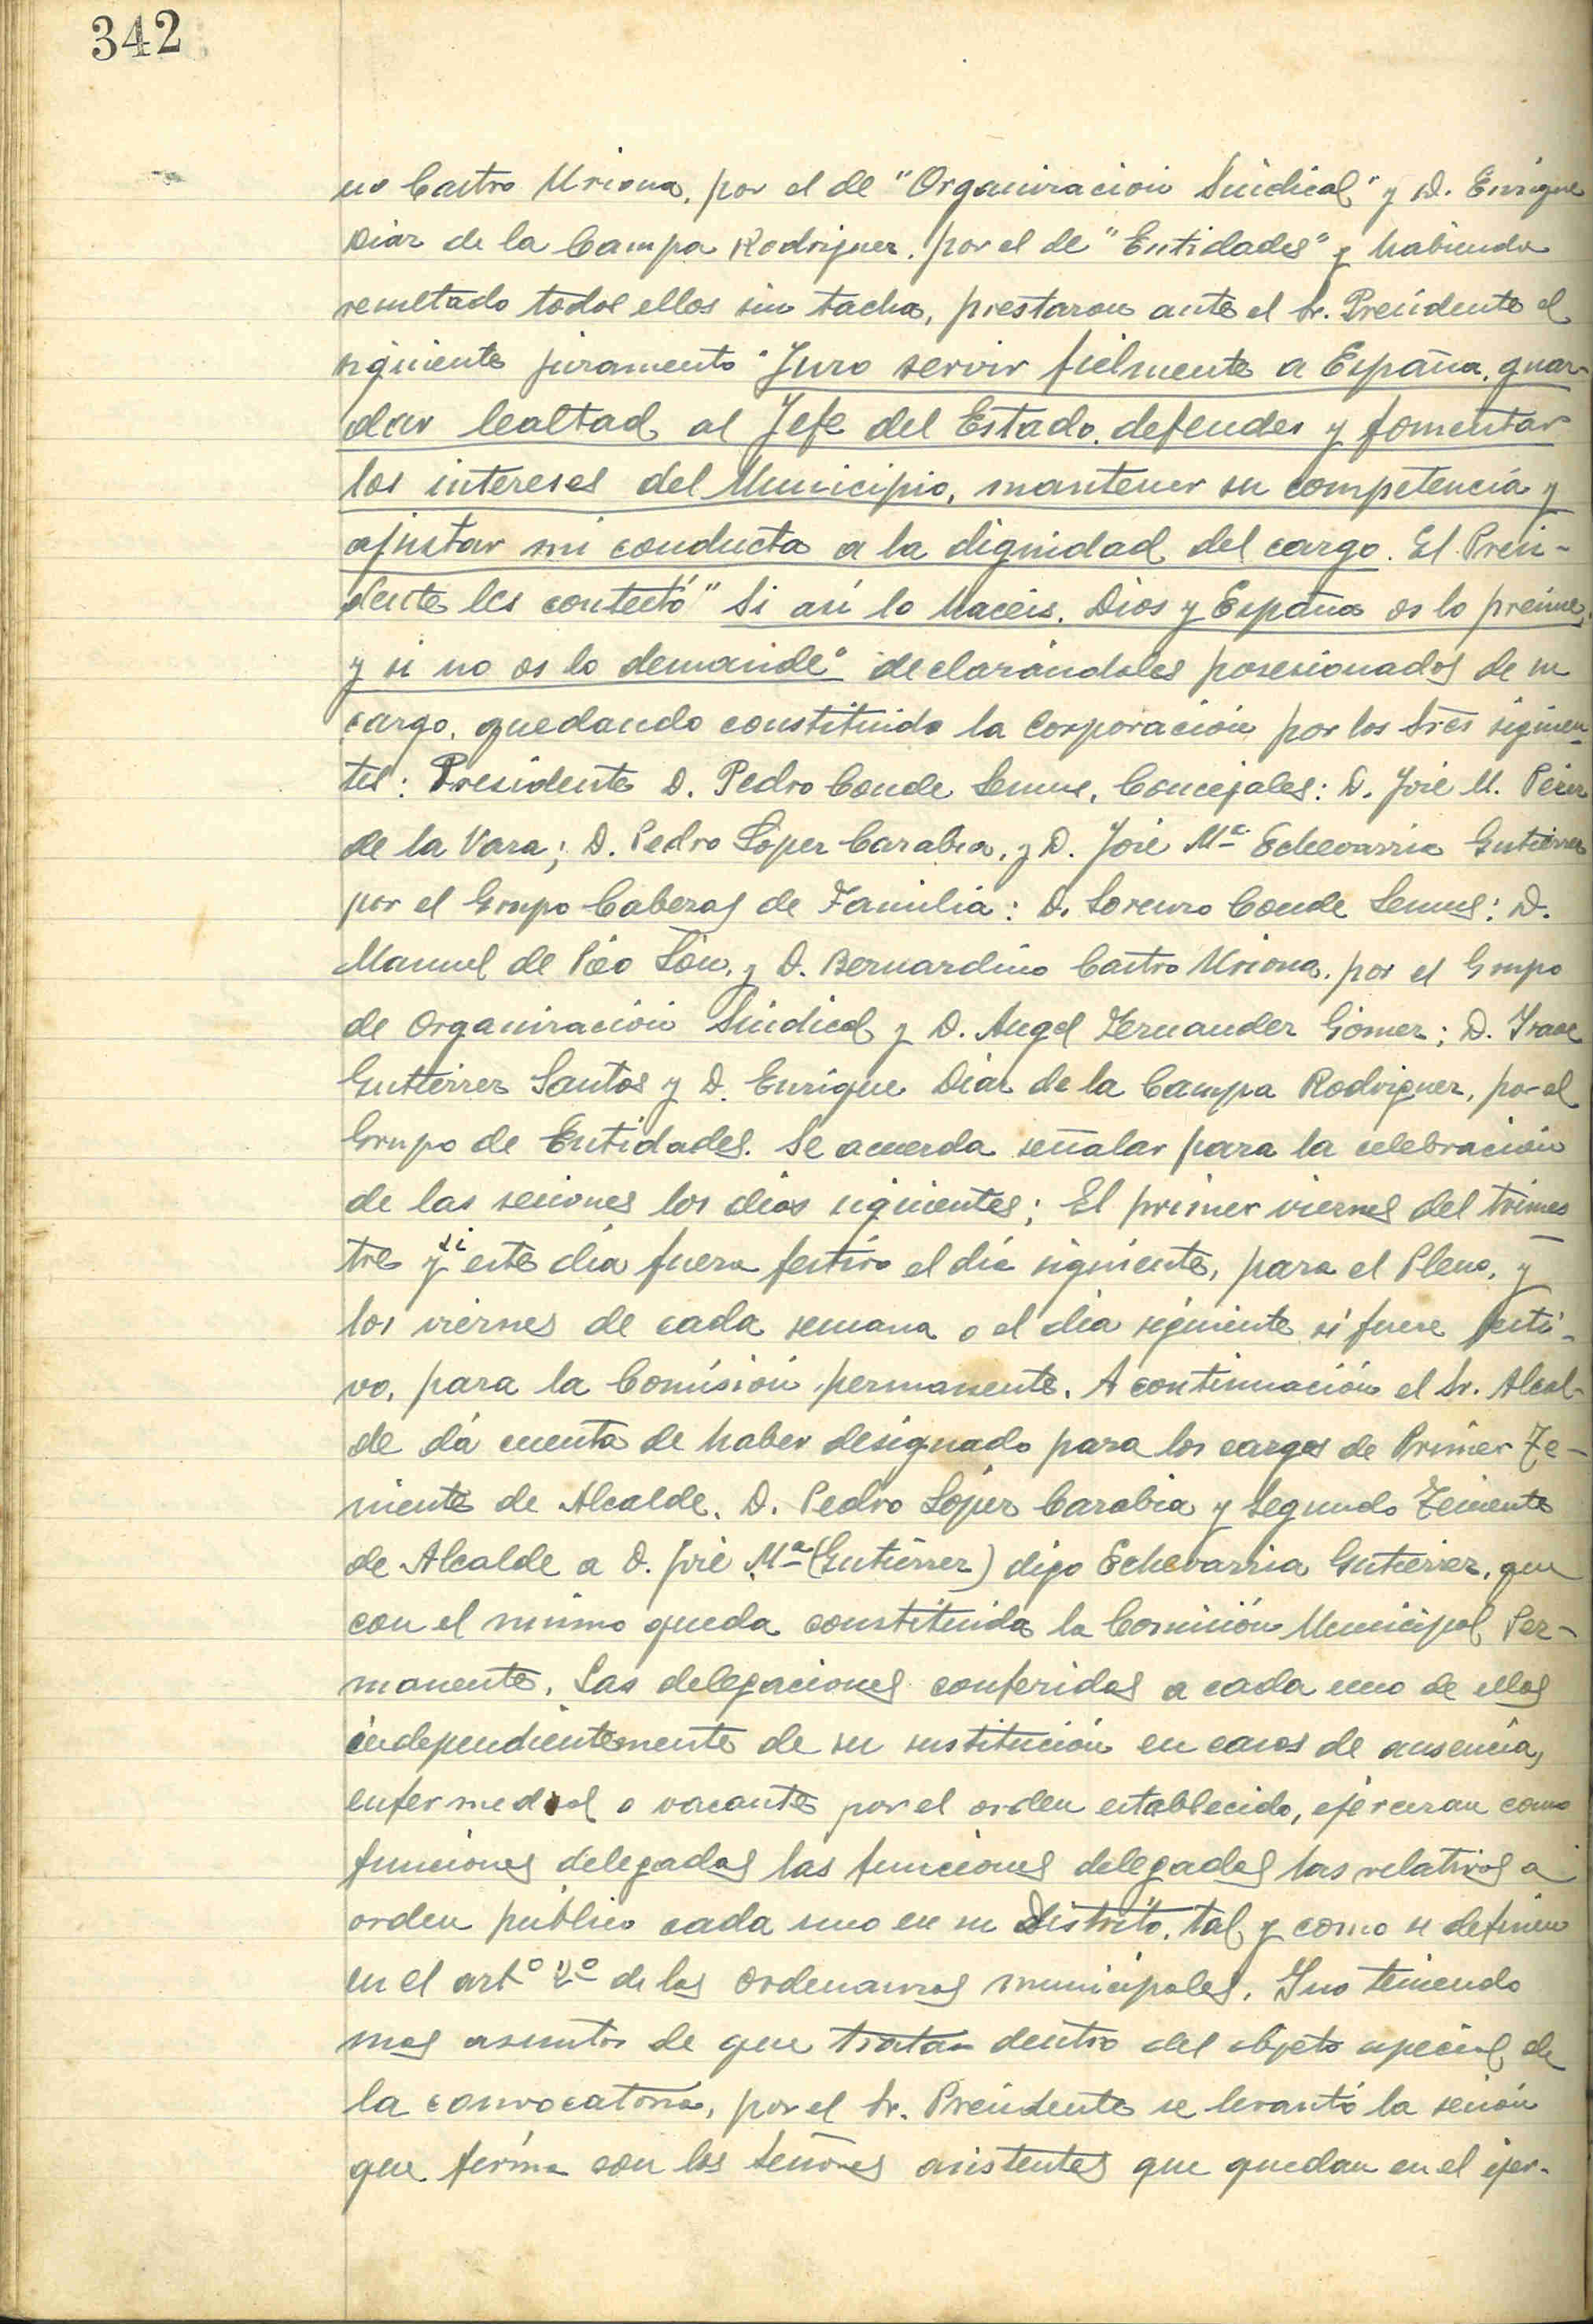 342
no Castro Uriona, por el de "Organización Sindical" y D. Enrique
Diaz de la Campa Rodriguez, por el de "Entidades" y habiendo
resultado todos ellos sin tacha, prestaron ante el Sr. Presidente el
siguiente juramento "Juro servir fielmente a España, guar-
dar lealtad al Jefe del Estado, defender y fomentar
los intereses del Municipio, mantener su competencia y
ajustar mi conducta a la dignidad del cargo. El Presi-
dente les contestó "Si así lo haceis, Dios y España os lo premie,
y si no os lo demande" declarándoles posesionados de su
cargo, quedando constituida la Corporación por los Sres siguien-
tes: Presidente D. Pedro Conde Lemus, Concejales: D. José M. Pérez
de la Vara; D. Pedro López Carabia, y D. José Mª Echevarria Gutiérrez
por el Grupo Cabezas de Familia: D. Lorenzo Conde Lemus: D.
Manuel de y D. Bernardino Castro Uriona, por el Grupo
de Organización Sindical y D. Angel Fernandez Gómez; D. Isaac
Gutierrez Santos y D. Enrique Díaz de la Campa Rodriguez, por el
Grupo de Entidades. Se acuerda señalar para la celebración
de las sesiones los días siguientes; El primer viernes del trimes
tre y si este día fuera festivo el día siguiente, para el Pleno, y
los viernes de cada semana o el día siguiente si fuere festi-
vo, para la Comisión permanente. A continuación el Sr. Alcal-
de dá cuenta de haber designado para los cargos de Primer Te-
niente de Alcalde, D. Pedro López Carabia y Segundo Teniente
de Alcalde a D. José Mª (Gutiérrez) digo Echevarria Gutiérrez, que
con el mismo queda constituida la Comisión Municipal Per-
manente. Las delegaciones conferidas a cada uno de ellos
independientemente de su sustitución en casos de ausencia,
enfermedad o vacante por el orden establecido, ejerceran como
funciones delegadas las funciones delegadas las relativas a
orden público cada uno en su Distrito, tal y como se definen
en el artº 2º de las Ordenanzas municipales. Y no teniendo
mas asuntos de que tratar dentro del objeto especial de
la convocatoria, por el Sr. Presidente se levantó la sesión
que firma con los Señores asistentes que quedan en el ejer-